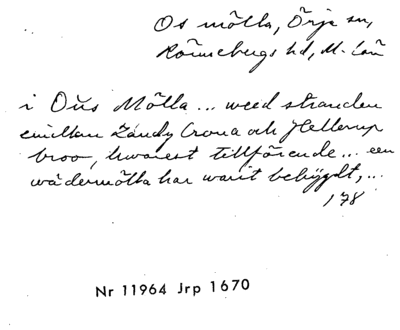 Os mölla, Örja sn,
Rönnebergs hd, M. län
i Oŭs Mölla... weed stranden
emellan Landz Crona och Hellerup
broo, hwarest tillförende... een
wädermölla har warit bebÿgdt,...
178
Nr 11964 Jrp 1670